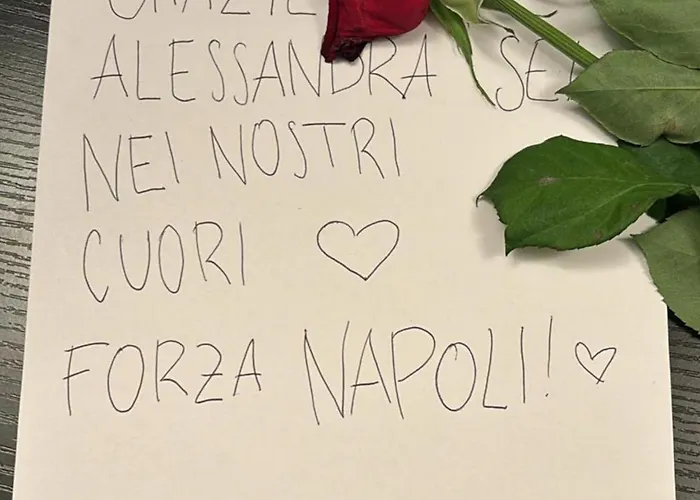 GRAZIE
ALESSANDRA SEI
NEI NOSTRI
CUORI ♡
FORZA NAPOLI! ♡